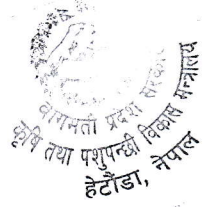 वागमती प्रदेश सरकार
कृषि तथा पशुपन्छी विकास मन्त्रालय
हेटौंडा, नेपाल